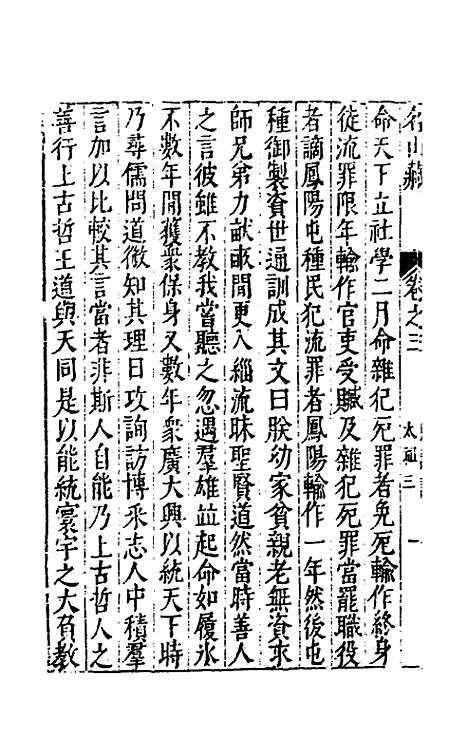 名山藏 卷之三 太祖三 一
命天下立社學二月命雜犯死罪者免死輸作終身
徒流罪限年輸作官吏受贓及雜犯死罪當罷職役
者謫鳳陽屯種民犯流罪者鳳陽輸作一年然後屯
種御製資世通訓成其文曰朕幼家貧親老無資求
師兄弟力畝畝間更入緇流昧聖賢道然當時善人
之言彼雖不教我當聽之忽遇羣雄並起命如履氷
不數年間獲衆保身又數年衆廣大興以統天下時
乃尋儒問道微知其理日攻詢訪博釆志人中積羣
言加以比較其言當者非斯人自能乃上古哲人之
善行上古哲王道與天同是以能統寰宇之大負教